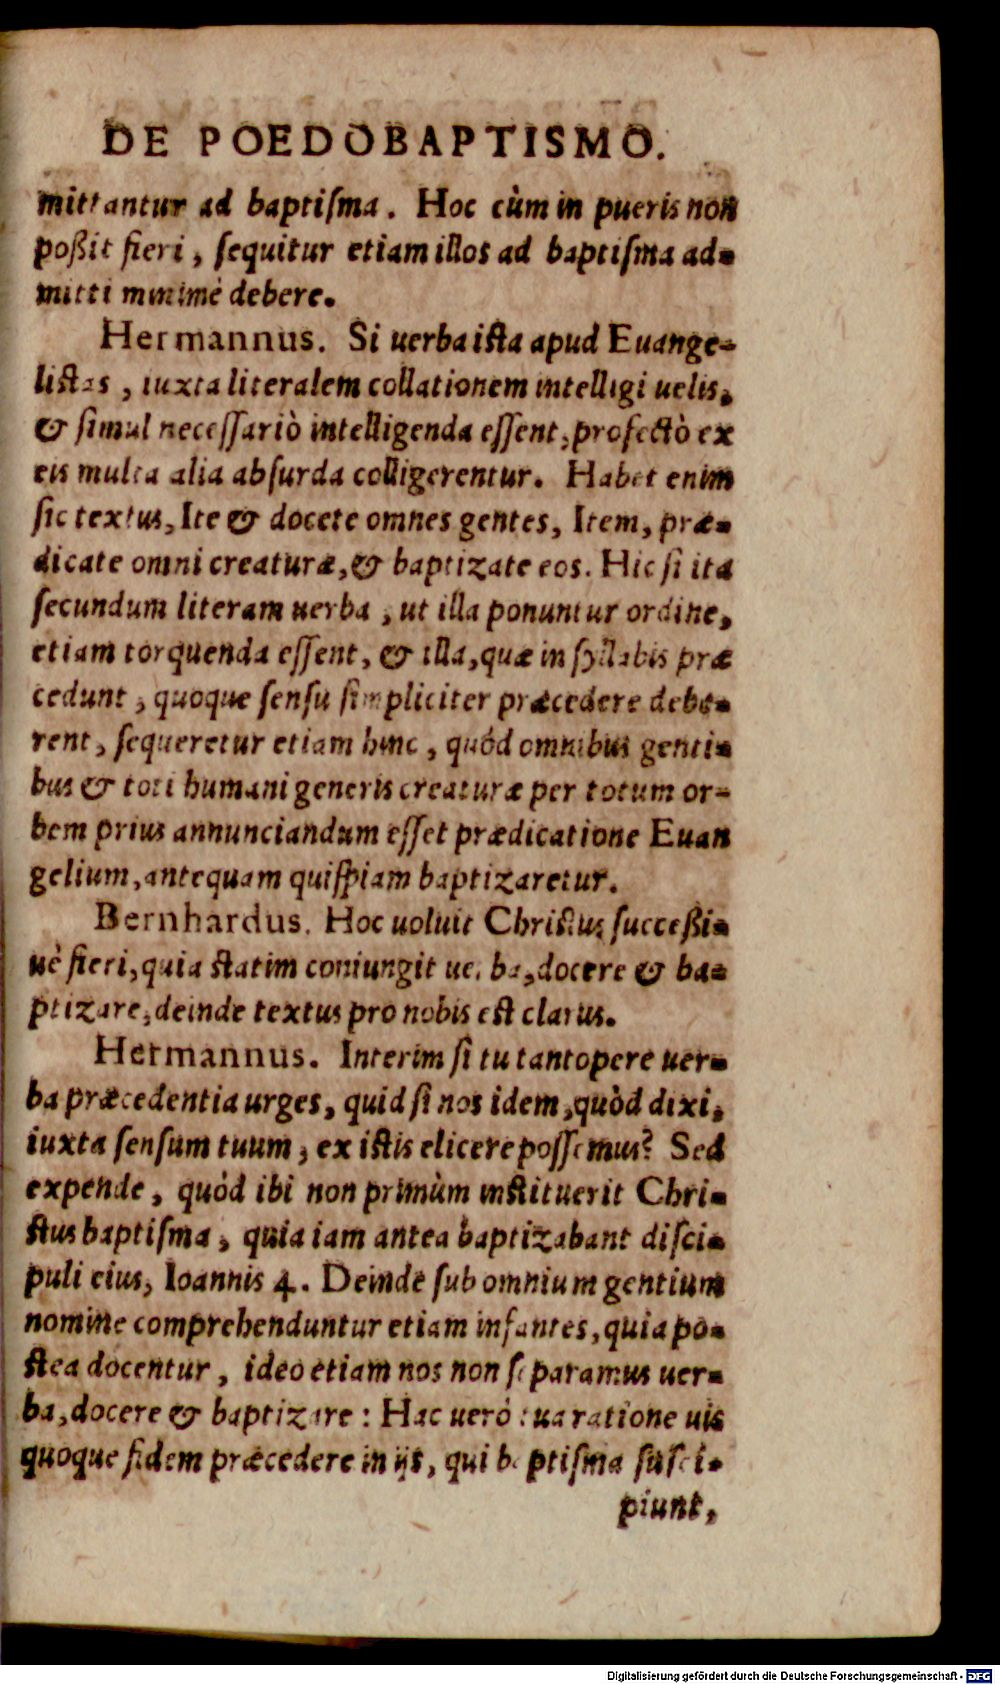 DE POEDOBAPTISMO.
mittantur ad baptiſma. Hoc cùm in pueris non
poßit fieri, ſequitur etiam illos ad baptiſma ad-
mitti minimè debere.
Hermannus. Si uerba iſta apud Euange-
liſtas, iuxta literalem collationem intelligi uelis,
& ſimul neceſſariò intelligenda eſſent, profectò ex
eis multa alia abſurda colligerentur. Habet enim
ſic textus, Ite & docete omnes gentes, Item, præ-
dicate omni creaturæ, & baptizate eos. Hic ſi ita
ſecundum literam uerba, ut illa ponuntur ordine,
etiam torquenda eſſent, & illa, quæ in ſyllabis præ
cedunt, quoque ſenſu ſimpliciter præcedere debe-
rent, ſequeretur etiam hinc, quòd omnibus genti-
bus & toti humani generis creaturæ per totum or-
bem prius annunciandum eſſet prædicatione Euan
gelium, antequam quiſpiam baptizaretur.
Bernhardus. Hoc uoluit Chriſtus ſucceßi-
uè fieri, quia ſtatim coniungit uerba, docere & ba-
ptizare, deinde textus pro nobis eſt clarus.
Hermannus. Interim ſi tu tantopere uer-
ba præcedentia urges, quid ſi nos idem, quòd dixi,
iuxta ſenſum tuum, ex iſtis elicere poſſemus? Sed
expende, quòd ibi non primùm inſtituerit Chri-
ſtus baptiſma, quia iam antea baptizabant diſci-
puli eius, Ioannis 4. Deinde ſub omnium gentium
nomine comprehenduntur etiam infantes, quia po-
ſtea docentur, ideo etiam nos non ſeparamus uer-
ba, docere & baptizare: Hac uerò tua ratione uis
quoque fidem præcedere in ijs, qui baptiſma ſuſci-
piunt,
Digitalisierung gefördert durch die Deutsche Forschungsgemeinschaft - DFG